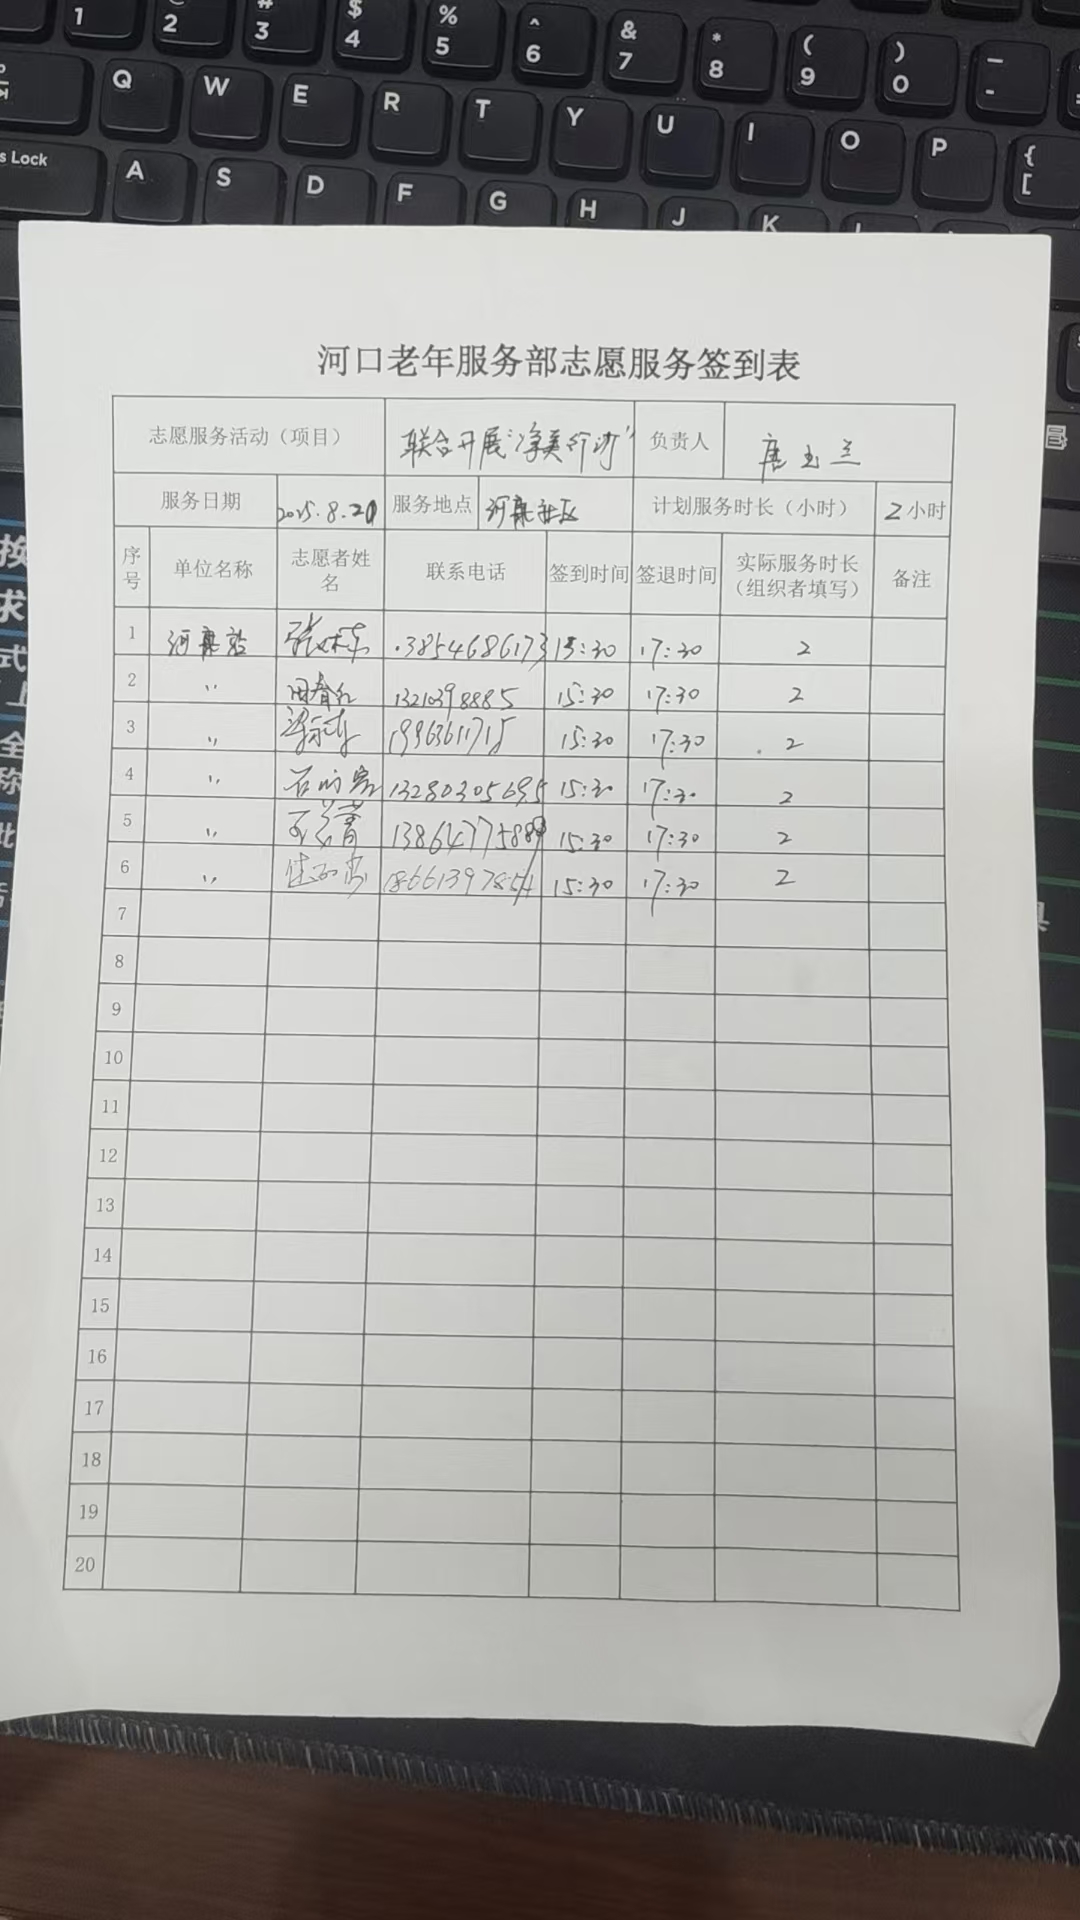 1 2 # 3 $ 4 % 5 ^ 6 & 7 * 8 ( 9 ) 0 — -
Q W E R T Y U I O P { [
s Lock A S D F G H J K
河口老年服务部志愿服务签到表
志愿服务活动（项目） 联合开展"净美行动" 负责人 唐玉兰
服务日期 2025.8.20 服务地点 河 社区 计划服务时长（小时） 2小时
序号 单位名称 志愿者姓名 联系电话 签到时间 签退时间 实际服务时长（组织者填写） 备注
1 河 站 张 13854686173 15:30 17:30 2
2 〃 田春红 13210398885 15:30 17:30 2
3 〃 19963611715 15:30 17:30 2
4 〃 石 13280305695 15:30 17:30 2
5 〃 1386477588 15:30 17:30 2
6 〃 18661397854 15:30 17:30 2
7
8
9
10
11
12
13
14
15
16
17
18
19
20